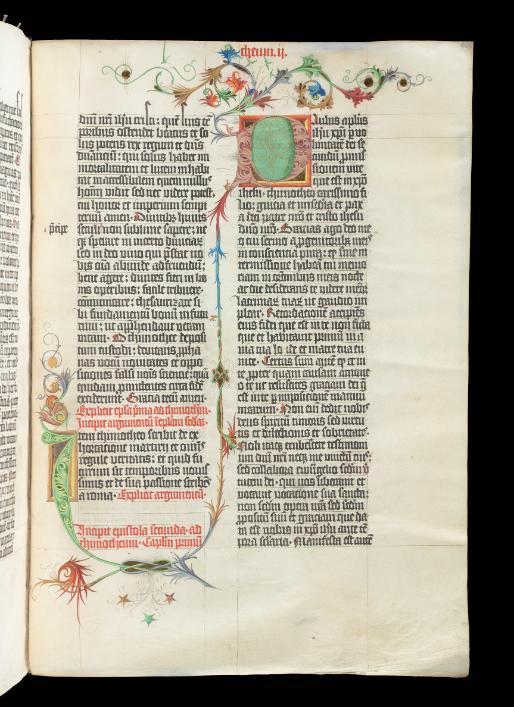 theum. ii.
dñi nr̃i ihu cristi: quē suis tē
poribus ostendet beatus et so
lus potens rex regum et dñs
dñanciū: qui solus habet im
mortalitatem et lucem in habi
tat inaccessibilem: quem nullus
hoīm vidit sed nec videre potest,
cui honor et imperium sempi
ternū amen. Divitibus huius
seculi non sublime sapere: ne
qz sperare in incerto diviciaꝝ
sed in deo vivo qui p̄stat no
bis omīa abunde ad fruendū:
bene agere: divites fieri in bo
nis operibus: facile tribuere:
cōmunicare: thesaurizare si
bi fundamentū bonum in futu
rum: ut apphendant veram
vitam. O thimothee deposi
tum custodi: devitans ꝓpha
nas vocū novitates et oppo
siciones falsi nois sciencie: quā
quidam ꝓmittentes circa fidē
exciderunt. Gracia tecū amen.
Explicit epl'a prima ad thimotheum.
Incipit argumentū
Item thimotheo scribit de ex
hortacione martirii et omīs
regule veritatis: et quid fu
turum sit temporibus novis
simis et de sua passione scribēs
a roma. Explicit argumentū.
Incipit epistola secunda ad
thimotheum. Caplm primū
Paulus aplus
ihu xpi p vo
luntatē dei se
cundū promis
sionem vite,
que est in xpō
ihesu: thimotheo carissimo fi
lio: gracia et misericordia et pax
a deo patre nr̃o et cristo ihesu
dño nr̃o. Gracias ago deo me
o cui servio a ꝓgenitoribus meis
in consciencia pura: qz sine in
termissione habeā tui memo
riam in orōnibus meis nocte
ac die desiderans te videre memor
lacrimaꝝ tuaꝝ ut gaudio im
plear. Recordacionē accipiens
eius fidei que est in te non ficta
que et habitavit primū in a
via tua loide et matre tua eu
nice. Certus sum autē qz et in
te. propter quam causam amone
o te ut resuscites graciam dei q̄
est in te p imposicionē manuū
mearum. Non eni dedit nobis
deus spiritū timoris sed virtu
tis et dilectionis et sobrietatis.
Noli itaqz erubescere testimoni
um dñi nr̃i neqz me vinctū eius:
sed collabora ewangelio secundū
virtutem dei: qui nos liberavit et
vocavit vocacione sua sancta:
non secundū opera nr̃a sed secundū
ꝓpositū suū et graciam que da
ta est nobis in xpō ihu ante tē
pora secularia. Manifesta est autē